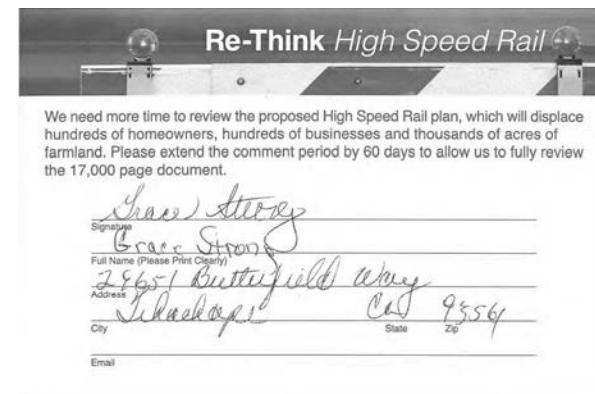 Re-Think High Speed Rail
We need more time to review the proposed High Speed Rail plan, which will displace
hundreds of homeowners, hundreds of businesses and thousands of acres of
farmland. Please extend the comment period by 60 days to allow us to fully review
the 17,000 page document.
Grace Strong
Signature
Grace Strong
Full Name (Please Print Clearly)
29651 Butterfield Way
Address
Tehachapi Ca 93561
City State Zip
Email